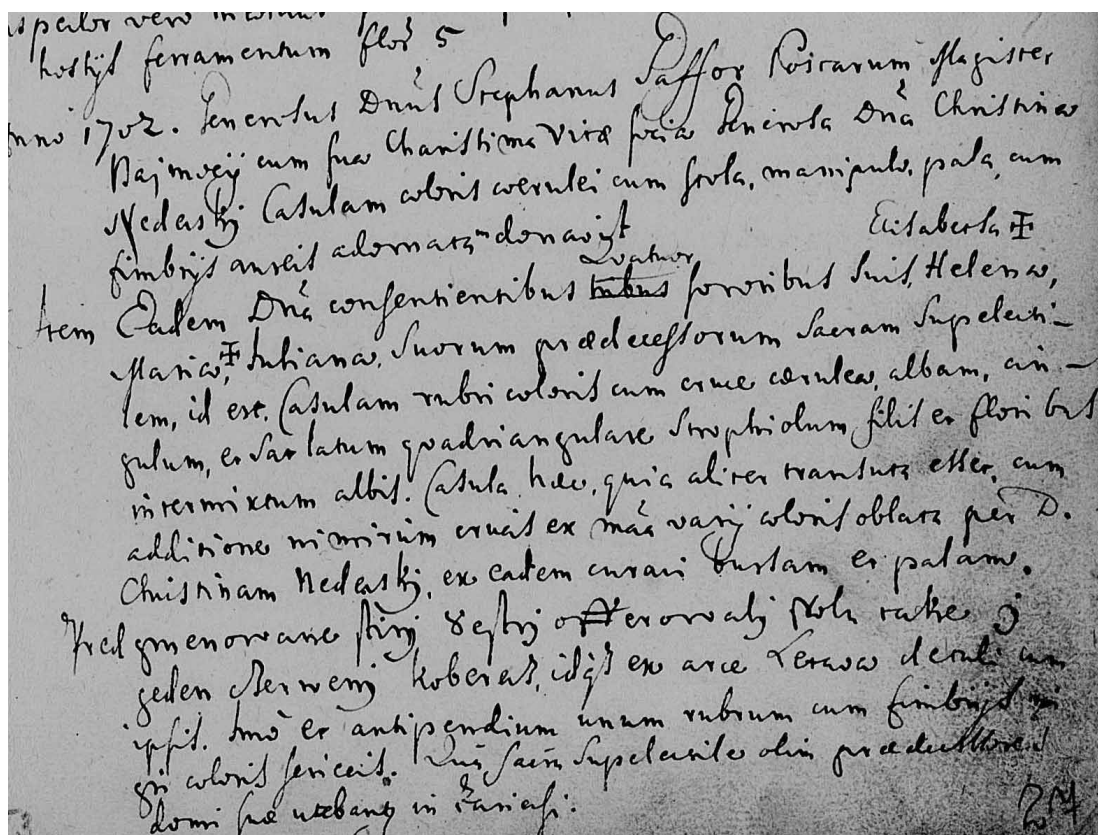 vero
hostijs ferramentum flor 5
Anno 1702. Generosus Dnūs Stephanus Saffor Magister
Bajmocij cum sua Charissima Vitæ socia Generosa Dnā Christina
Nedeczkij Casulam coloris coerulei cum stola, manipulo, pala, cum
fimbrijs aureis adornatam donavit
Elisabetha ✠
Quatuor
Item Eadem Dnā consentientibus tribus sororibus suis, Helena,
Maria ✠, Juliana, suorum prædecessorum Sacram Supelecti-
lem, id est. Casulam rubri coloris cum cruce cærulea, albam, cin-
gulum, et latum quadriangulare Strophiolum filis et floribus
intermixtum albis. Casula hæc, quia aliter transuta esset, cum
additione nimirum crucis ex mãa varij coloris oblata per D.
Christinam Nedeczkij, ex eadem curavi bursam et palam.
Pred gmenowane sstirij Sestrij offerowalij stolu take y
geden cžerwenij koberecz, ex arce Letava detuli cum
ipsis. Imò et antipendium unum rubrum cum fimbrijs ni
gri coloris sericeis. Quā sacrā Supelectile olim prædecessores
domi suæ utebantur in
27